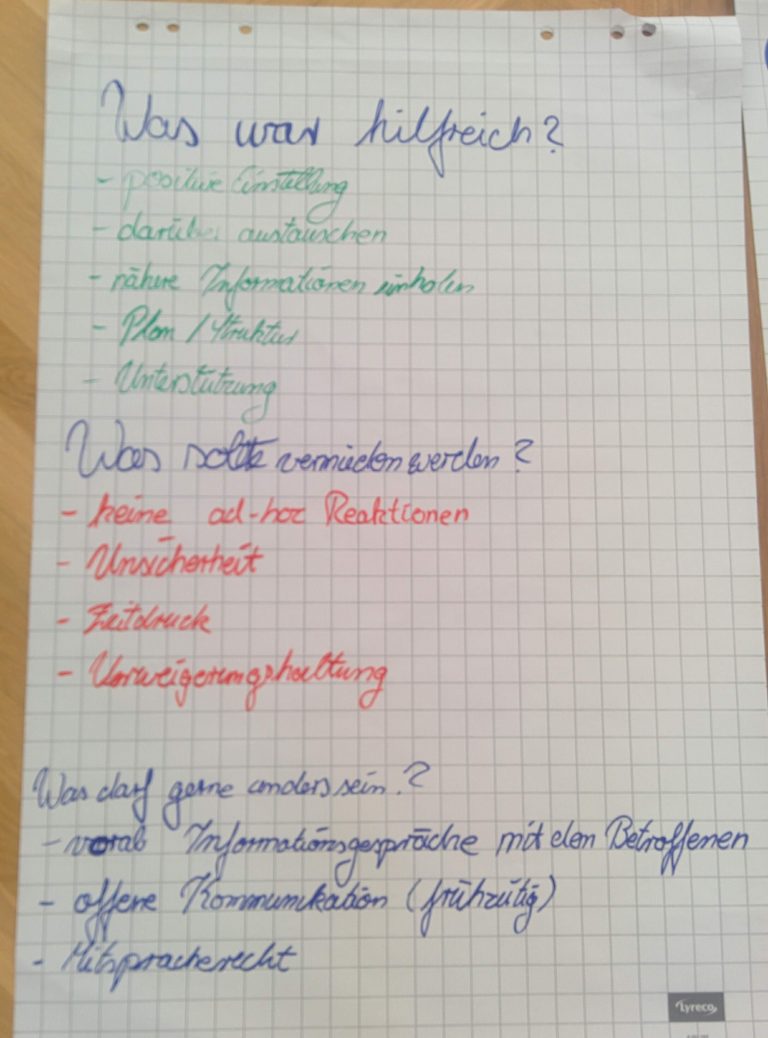 Was war hilfreich?
- positive Einstellung
- darüber austauschen
- nähere Informationen einholen
- Plan / Struktur
- Unterstützung
Was sollte vermieden werden?
- keine ad-hoc Reaktionen
- Unsicherheit
- Zeitdruck
- Verweigerungshaltung
Was darf gerne anders sein?
- vorab Informationsgespräche mit den Betroffenen
- offene Kommunikation (frühzeitig)
- Mitspracherecht
Lyreco